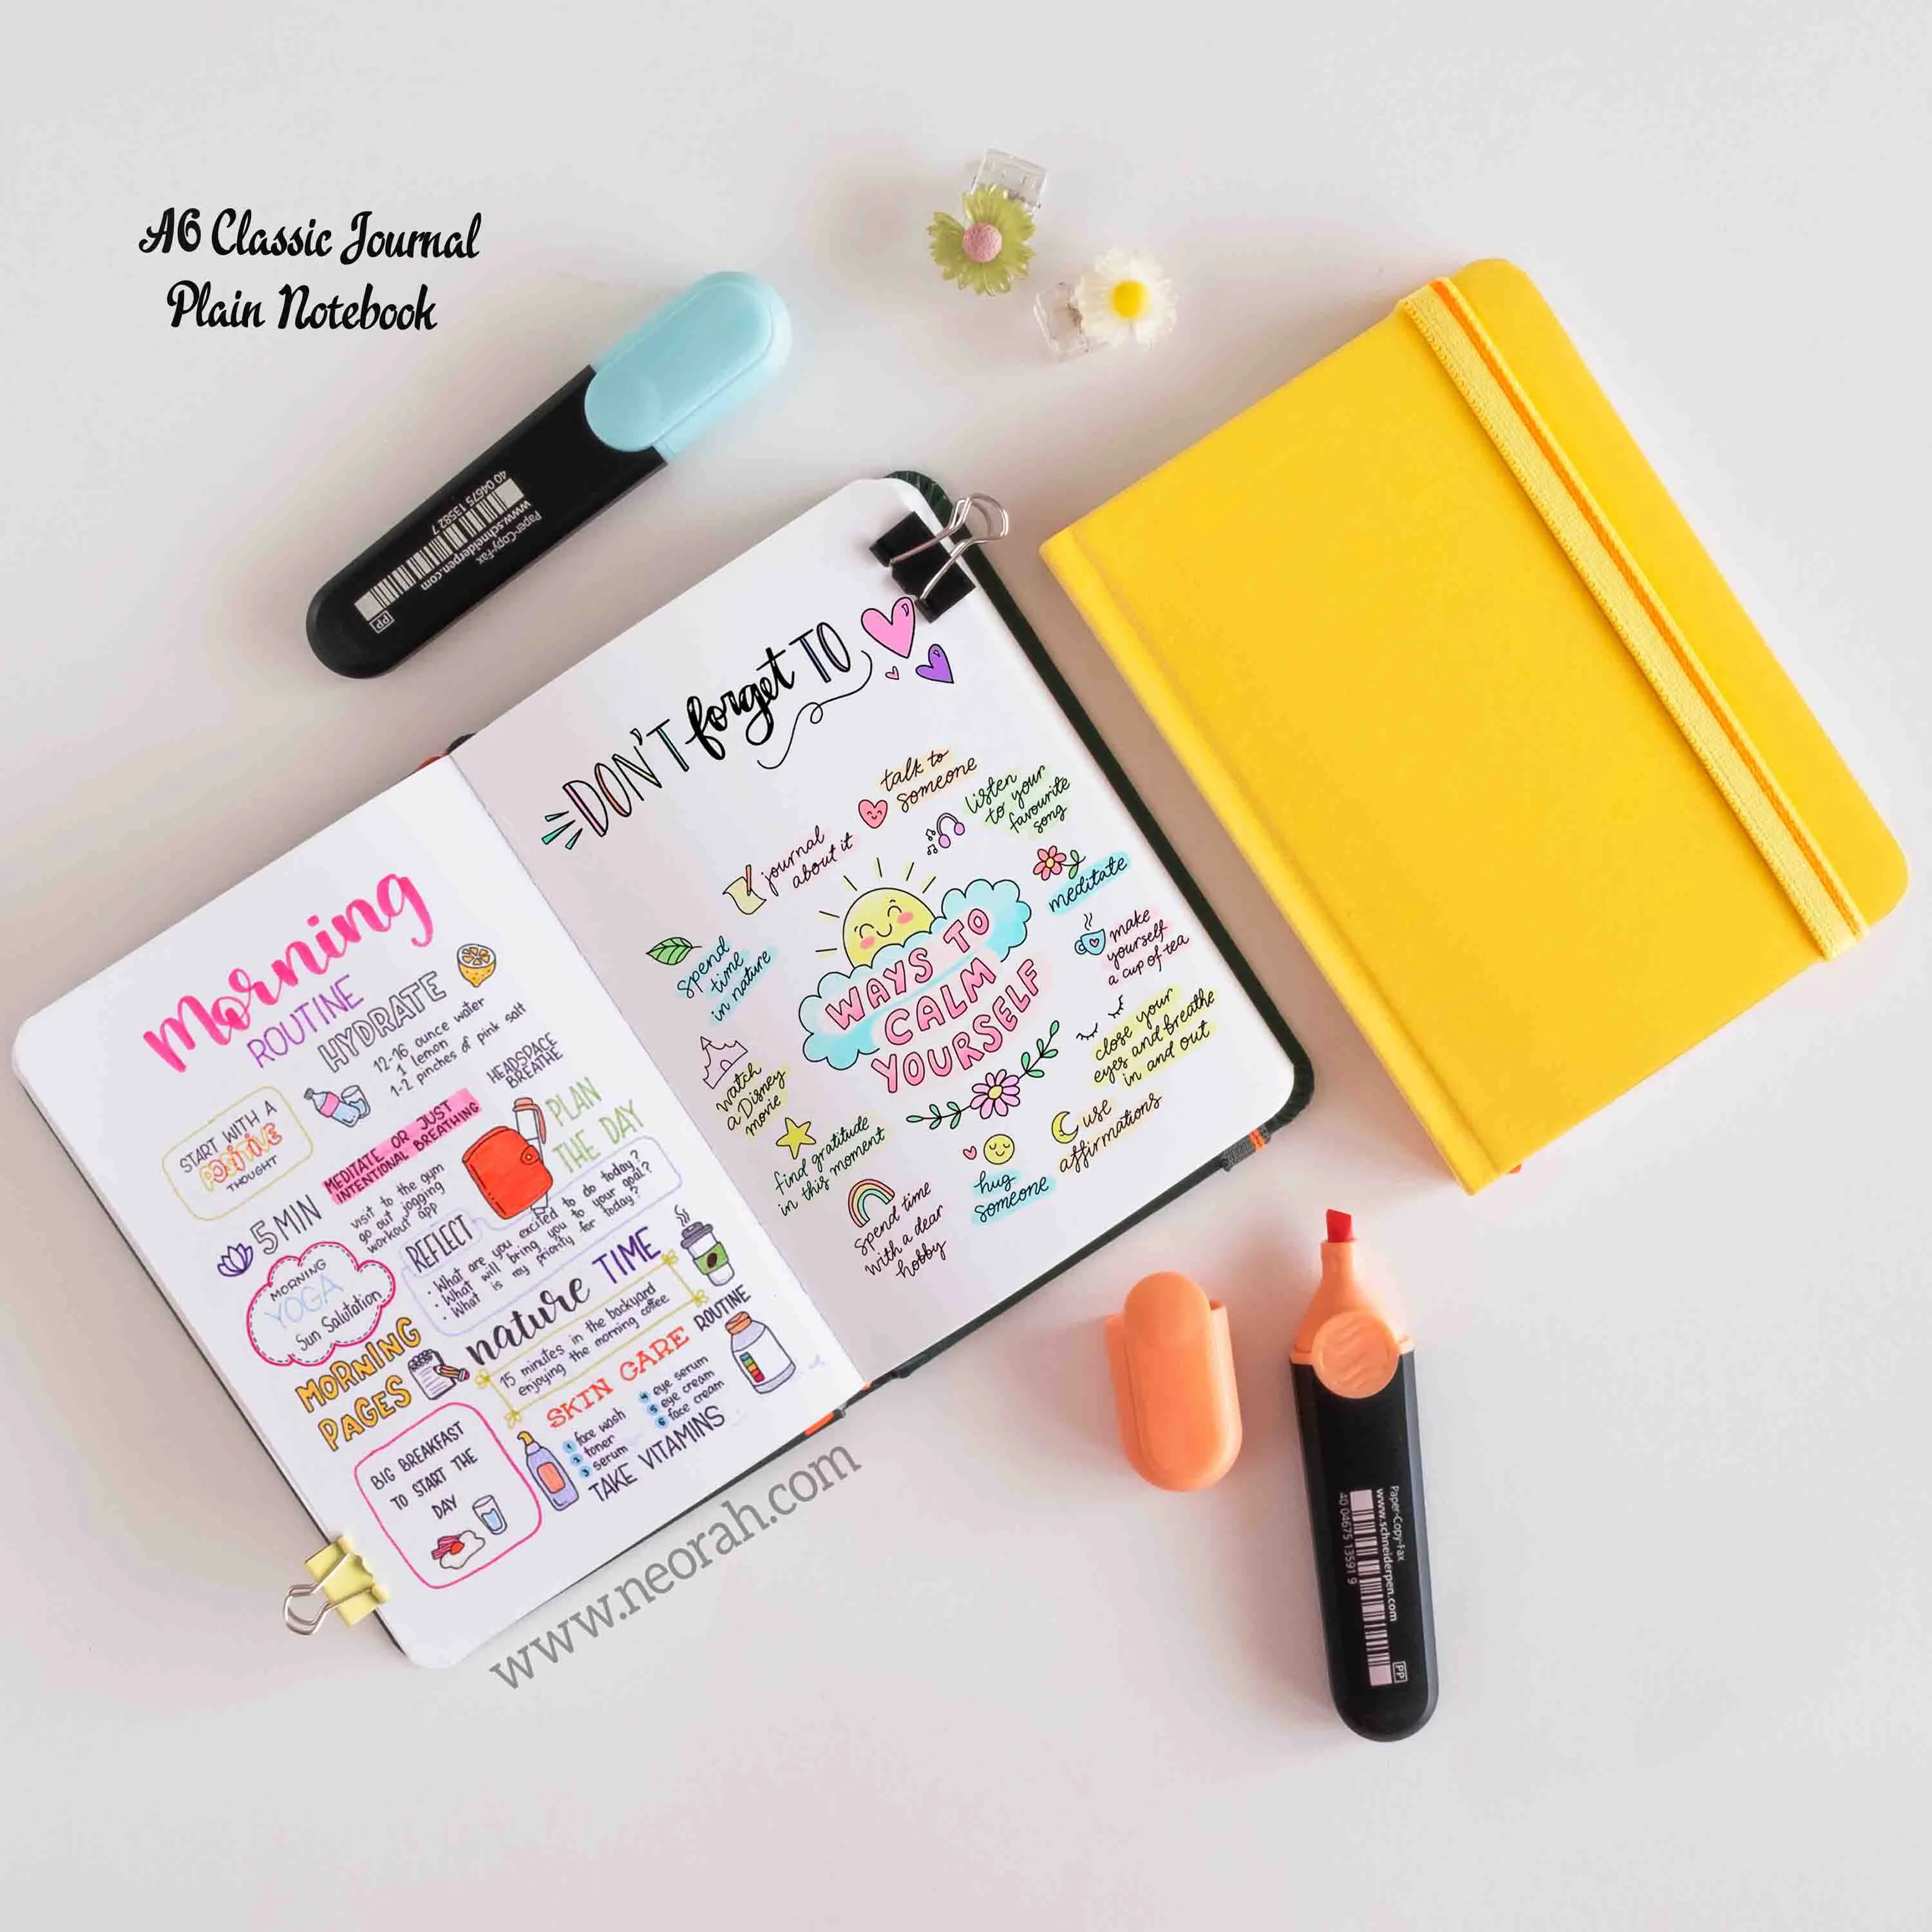 A6 Classic Journal
Plain Notebook
Paper-Copy-Fax
www.schneiderpen.com
40 04675 13582 7
PP
Morning
ROUTINE
HYDRATE
12-16 ounce water
1 lemon
1-2 pinches of pink salt
START WITH A
POSITIVE
THOUGHT
MEDITATE OR JUST
INTENTIONAL BREATHING
HEADSPACE
BREATHE
5 MIN
visit to the gym
go out jogging
workout app
PLAN
THE DAY
REFLECT
· What are you excited to do today?
· What will bring you to your goal?
· What is my priority for today?
MORNING
YOGA
Sun Salutation
nature TIME
15 minutes in the backyard
enjoying the morning coffee
MORNING
PAGES
SKIN CARE ROUTINE
1 face wash
2 toner
3 serum
4 eye serum
5 eye cream
6 face cream
TAKE VITAMINS
BIG BREAKFAST
TO START THE
DAY
DON'T forget TO
talk to
someone
listen
to your
favourite
song
journal
about it
meditate
spend
time
in nature
make
yourself
a cup of tea
WAYS TO
CALM
YOURSELF
close your
eyes and breathe
in and out
watch
a Disney
movie
find gratitude
in this moment
use
affirmations
hug
someone
spend time
with a dear
hobby
www.neorah.com
Paper-Copy-Fax
www.schneiderpen.com
40 04675 13591 9
PP